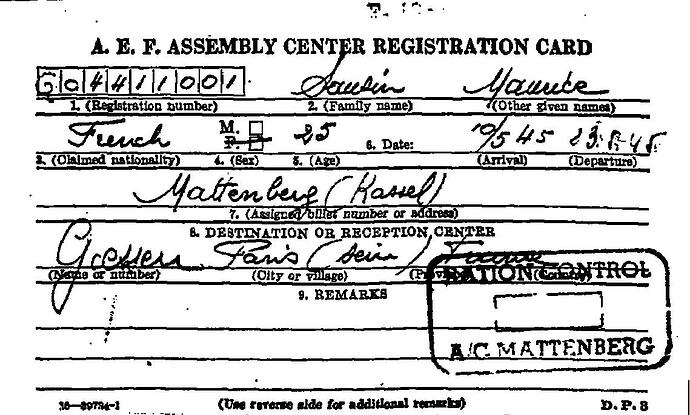 A. E. F. ASSEMBLY CENTER REGISTRATION CARD
G 0 4 4 1 1 0 0 1 Maurice
1. (Registration number) 2. (Family name) (Other given names)
French M. 25 6. Date: 10/5 45 23.5.45.
3. (Claimed nationality) F. 4. (Sex) 5. (Age) (Arrival) (Departure)
Mattenberg (Kassel)
7. (Assigned billet number or address)
8. DESTINATION OR RECEPTION CENTER
Paris (Seine) France
(Name or number) (City or village)
9. REMARKS
RATION CONTROL
A/C MATTENBERG
16-39734-1 (Use reverse side for additional remarks) D. P. 3